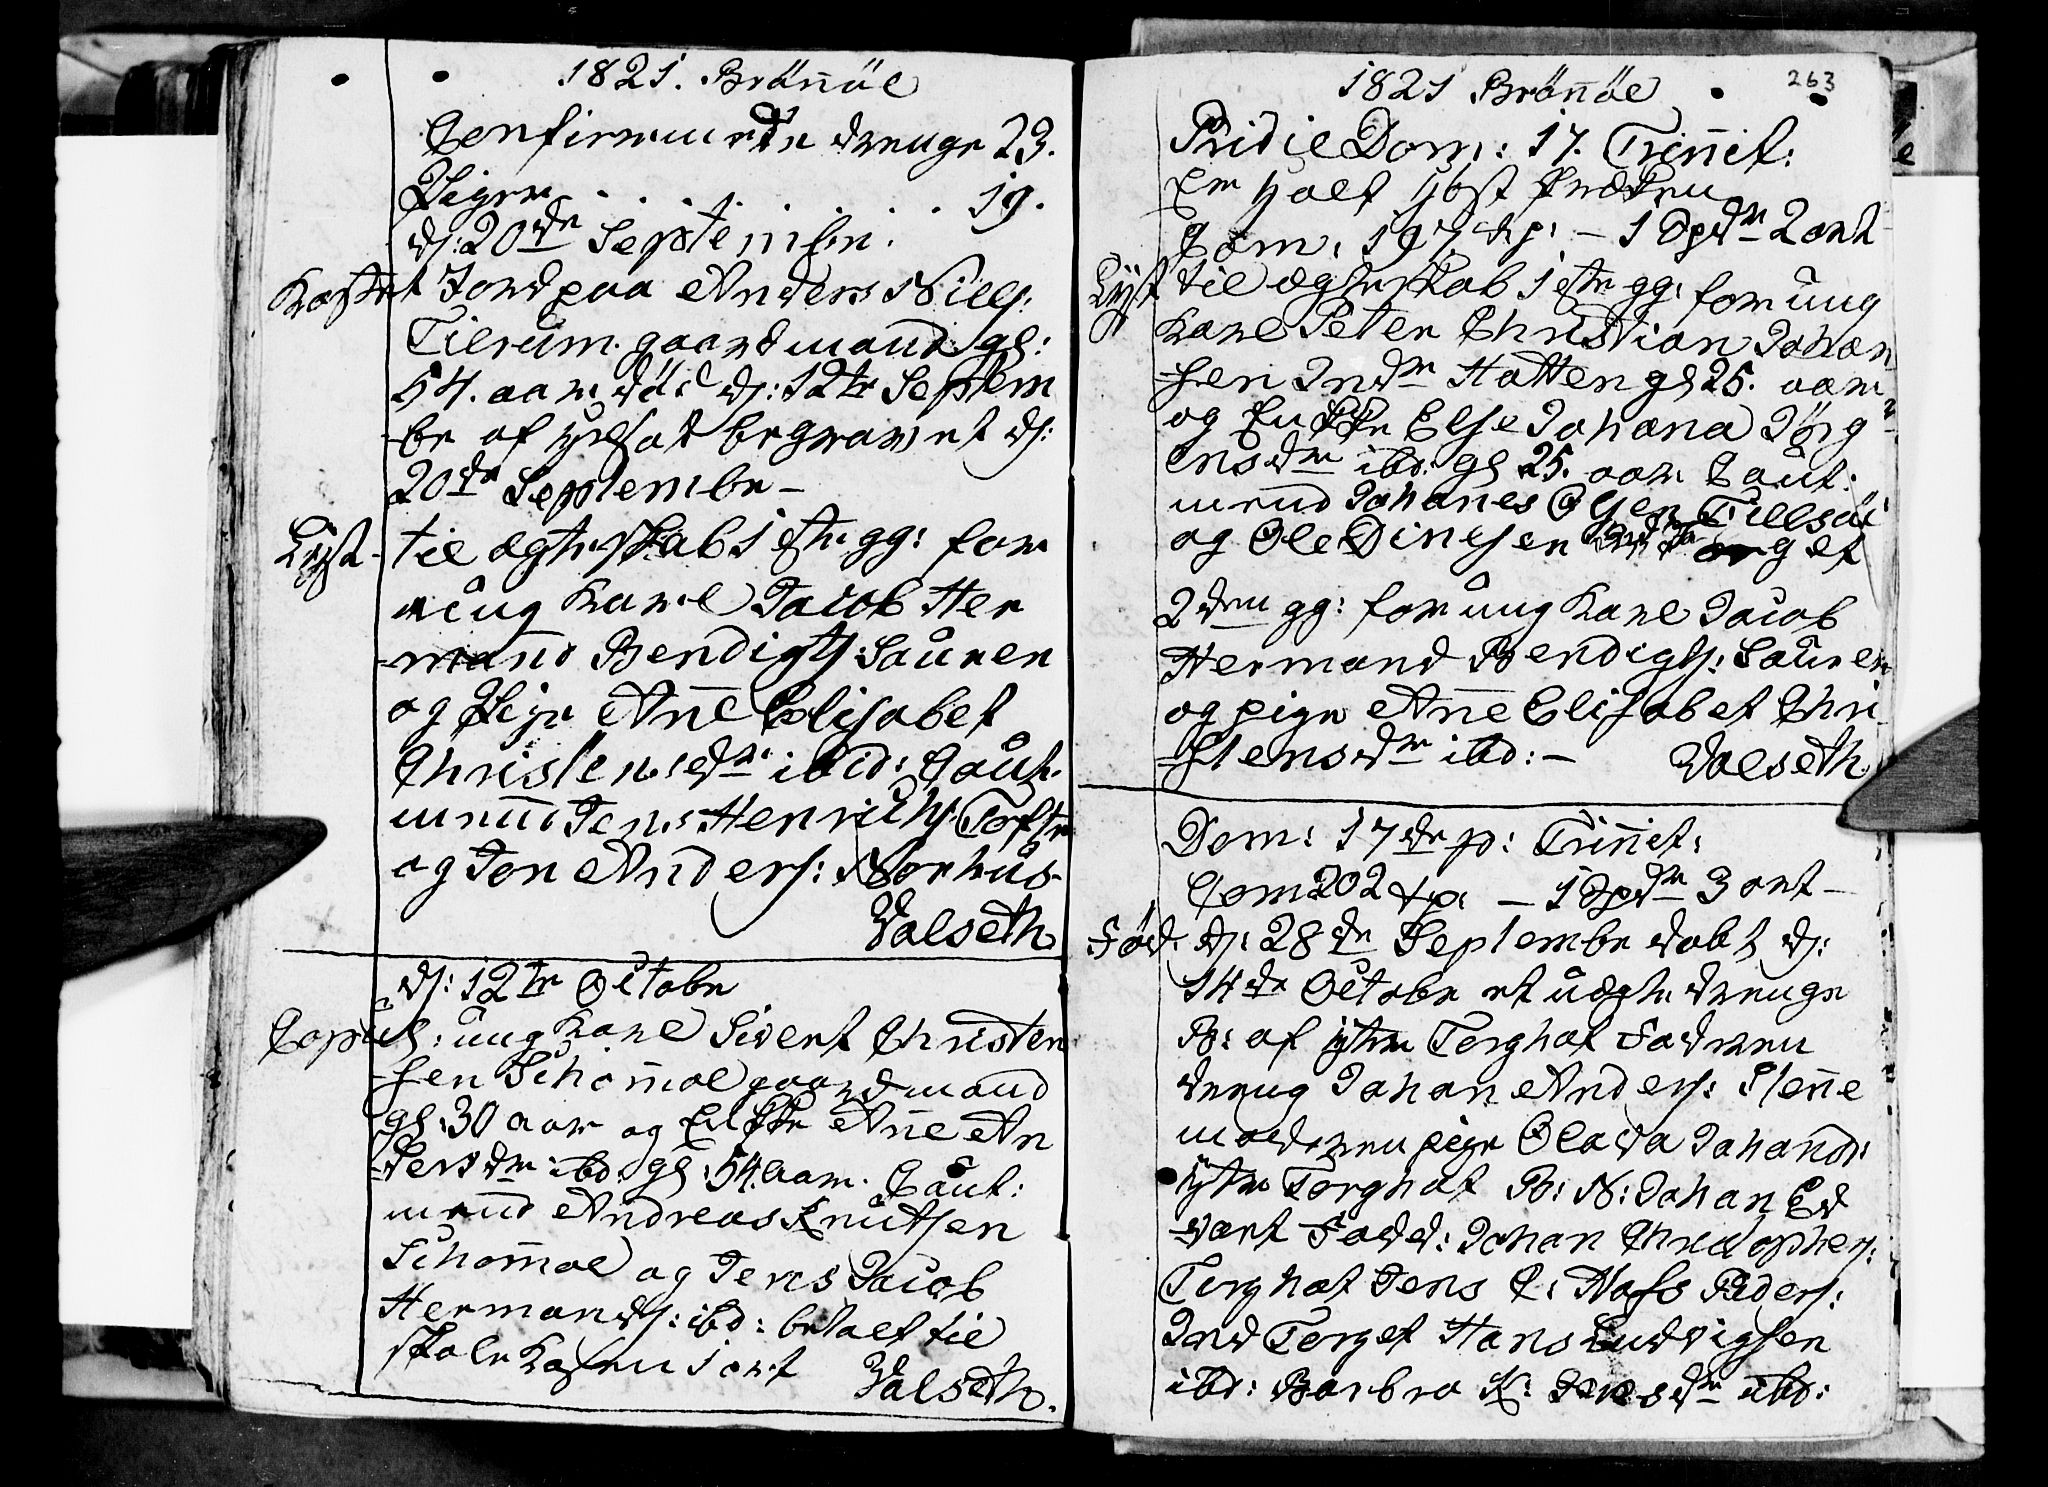 1821. Brönöe
Confirmerede drenge 23.
Piger . . . . . . . 19.
d: 20de Septembr.
Kastet Jord paa Anders Nills:
Tilrum gaardmand gl:
54. aar død d: 12te Septem
-br af begravet d:
20de Septembr –
Lyst- til ægteskab 1ste gg: for
ung Karl Jacob Her
-mand Bendigts: Sauren
og Pige Anne Elisabet
Christensdr ibid: Caut-
mend Jens Henrichs: Toft
og Jon Anders: Norhus-
Valseth
d: 12te Octobr
Copul: ung Karl Sivert Christen
-sen Schomoe gaardmand
gl: 30 aar og Enke Anne An
-dersdr ibd: gl: 54. aar. Caut:
mend Andreas Knutsen
Schomoe og Jens Jacob
Hermands: ibd: betalt til
skole Kassen 1 ort Valseth.
1821 Brönöe 263
Pridie Dom: 17. Trinit:
En holt höst Prædken
Com: 197 dp: – 1 Spdr 2 ort
Lyst til ægteskab 1ste gg: for ung
Karl Peter Christian Johan
-sen Indr Hatten gl 25. aar
og Enke Else Johana Jörg
ensdr ibd: gl 25. aar Caut:
mend Johanes Olsen Tillsöe
og Ole Dinesen Ind Torget
2den gg: for ung Karl Jacob
Hermand Bendigts: Sauren
og pige Anne Elisabet Chri
-stensdr ibd: – Valseth
Dom: 17de p: Trinit:
Com 202 dp: – 1 Spdr 3 ort –
Föd. d: 28de Septembr dobt d:
14de Octobr et uægte drenge
B: af ytre Torghat Faderen
dreng Johan Anders: Stenne
moderen pige Olava Johansdr
ytre Torghat B: N: Johan Ed
-vart Fadd: Johan Christophers:
Torghat Jens C: Hafs Peders:
Ind Torget Hans Ludvigsen
ibd: Barbro K: Jensdr ibd: